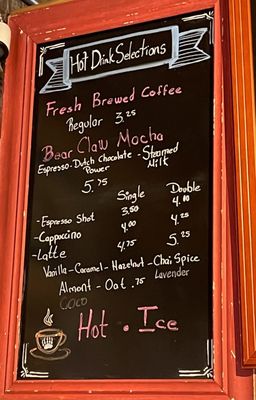 Hot Drink Selections
Fresh Brewed Coffee
Regular 3.25
Bear Claw Mocha
Espresso-Dutch Chocolate-Steamed
Power Milk
5.75
Single Double
-Espresso Shot 3.50 4.00
-Cappoccino 4.00 4.25
-Latte 4.75 5.25
Vanilla-Caramel-Hazelnut-Chai Spice
Almont-Oat .75 Lavender
COCO
Hot • Ice